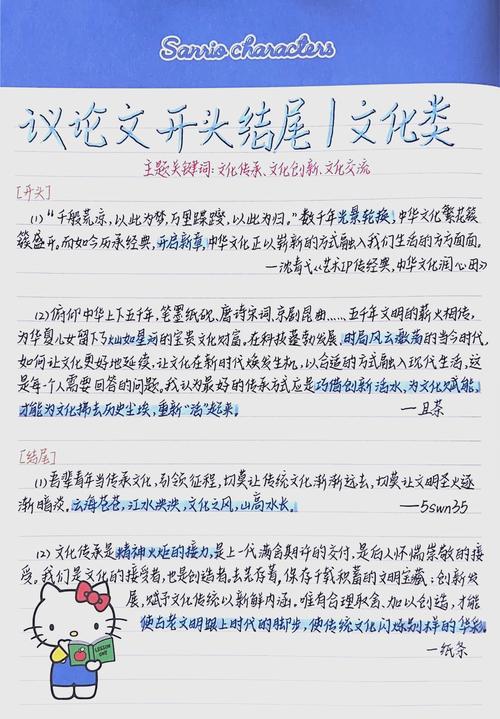 Sanrio characters
议论文开头结尾|文化类
主题关键词:文化传承、文化创新、文化交流
[开头]
(1)“千般荒凉,以此为梦,万里蹀躞,以此为归。”数千年光景轮换,中华文化繁花簇
簇盛开。而如今历承经典,开启新章,中华文化正以崭新的方式融入我们生活的方方面面。
—沈青弋《艺术IP传经典,中华文化润心田》
(2)俯仰中华上下五千年,笔墨纸砚、唐诗宋词、京剧昆曲……五千年文明的薪火相传,
为华夏儿女留下了灿如星河的宝贵文化财富。在科技蓬勃发展、时局风云激荡的当今时代,
如何让文化更好地延续,让文化在新时代焕发生机,以合适的方式融入现代生活,这
是每个人需要回答的问题。我认为最好的传承方式应是巧借创新活水,为文化赋能,
才能为文化拂去历史尘埃,重新“活”起来。 —且茶
[结尾]
(1)吾辈青年当传承文化,引领征程,切莫让传统文化渐渐远去,切莫让文明圣火逐
渐暗淡。云海苍苍,江水泱泱,文化之风,山高水长。 —5swn35
(2)文化传承是精神火炬的接力,是上一代满含期许的交付,是后人怀揣崇敬的接
受。我们是文化的接受者,也是创造者,去芜存菁,保存千载积蓄的文明宝藏;创新发
展,赋予文化传统以新鲜内涵。唯有合理取舍、加以创造,才能
使古老文明跟上时代的脚步,使传统文化闪烁别样的华彩。
—纸条
LESSON
ONE